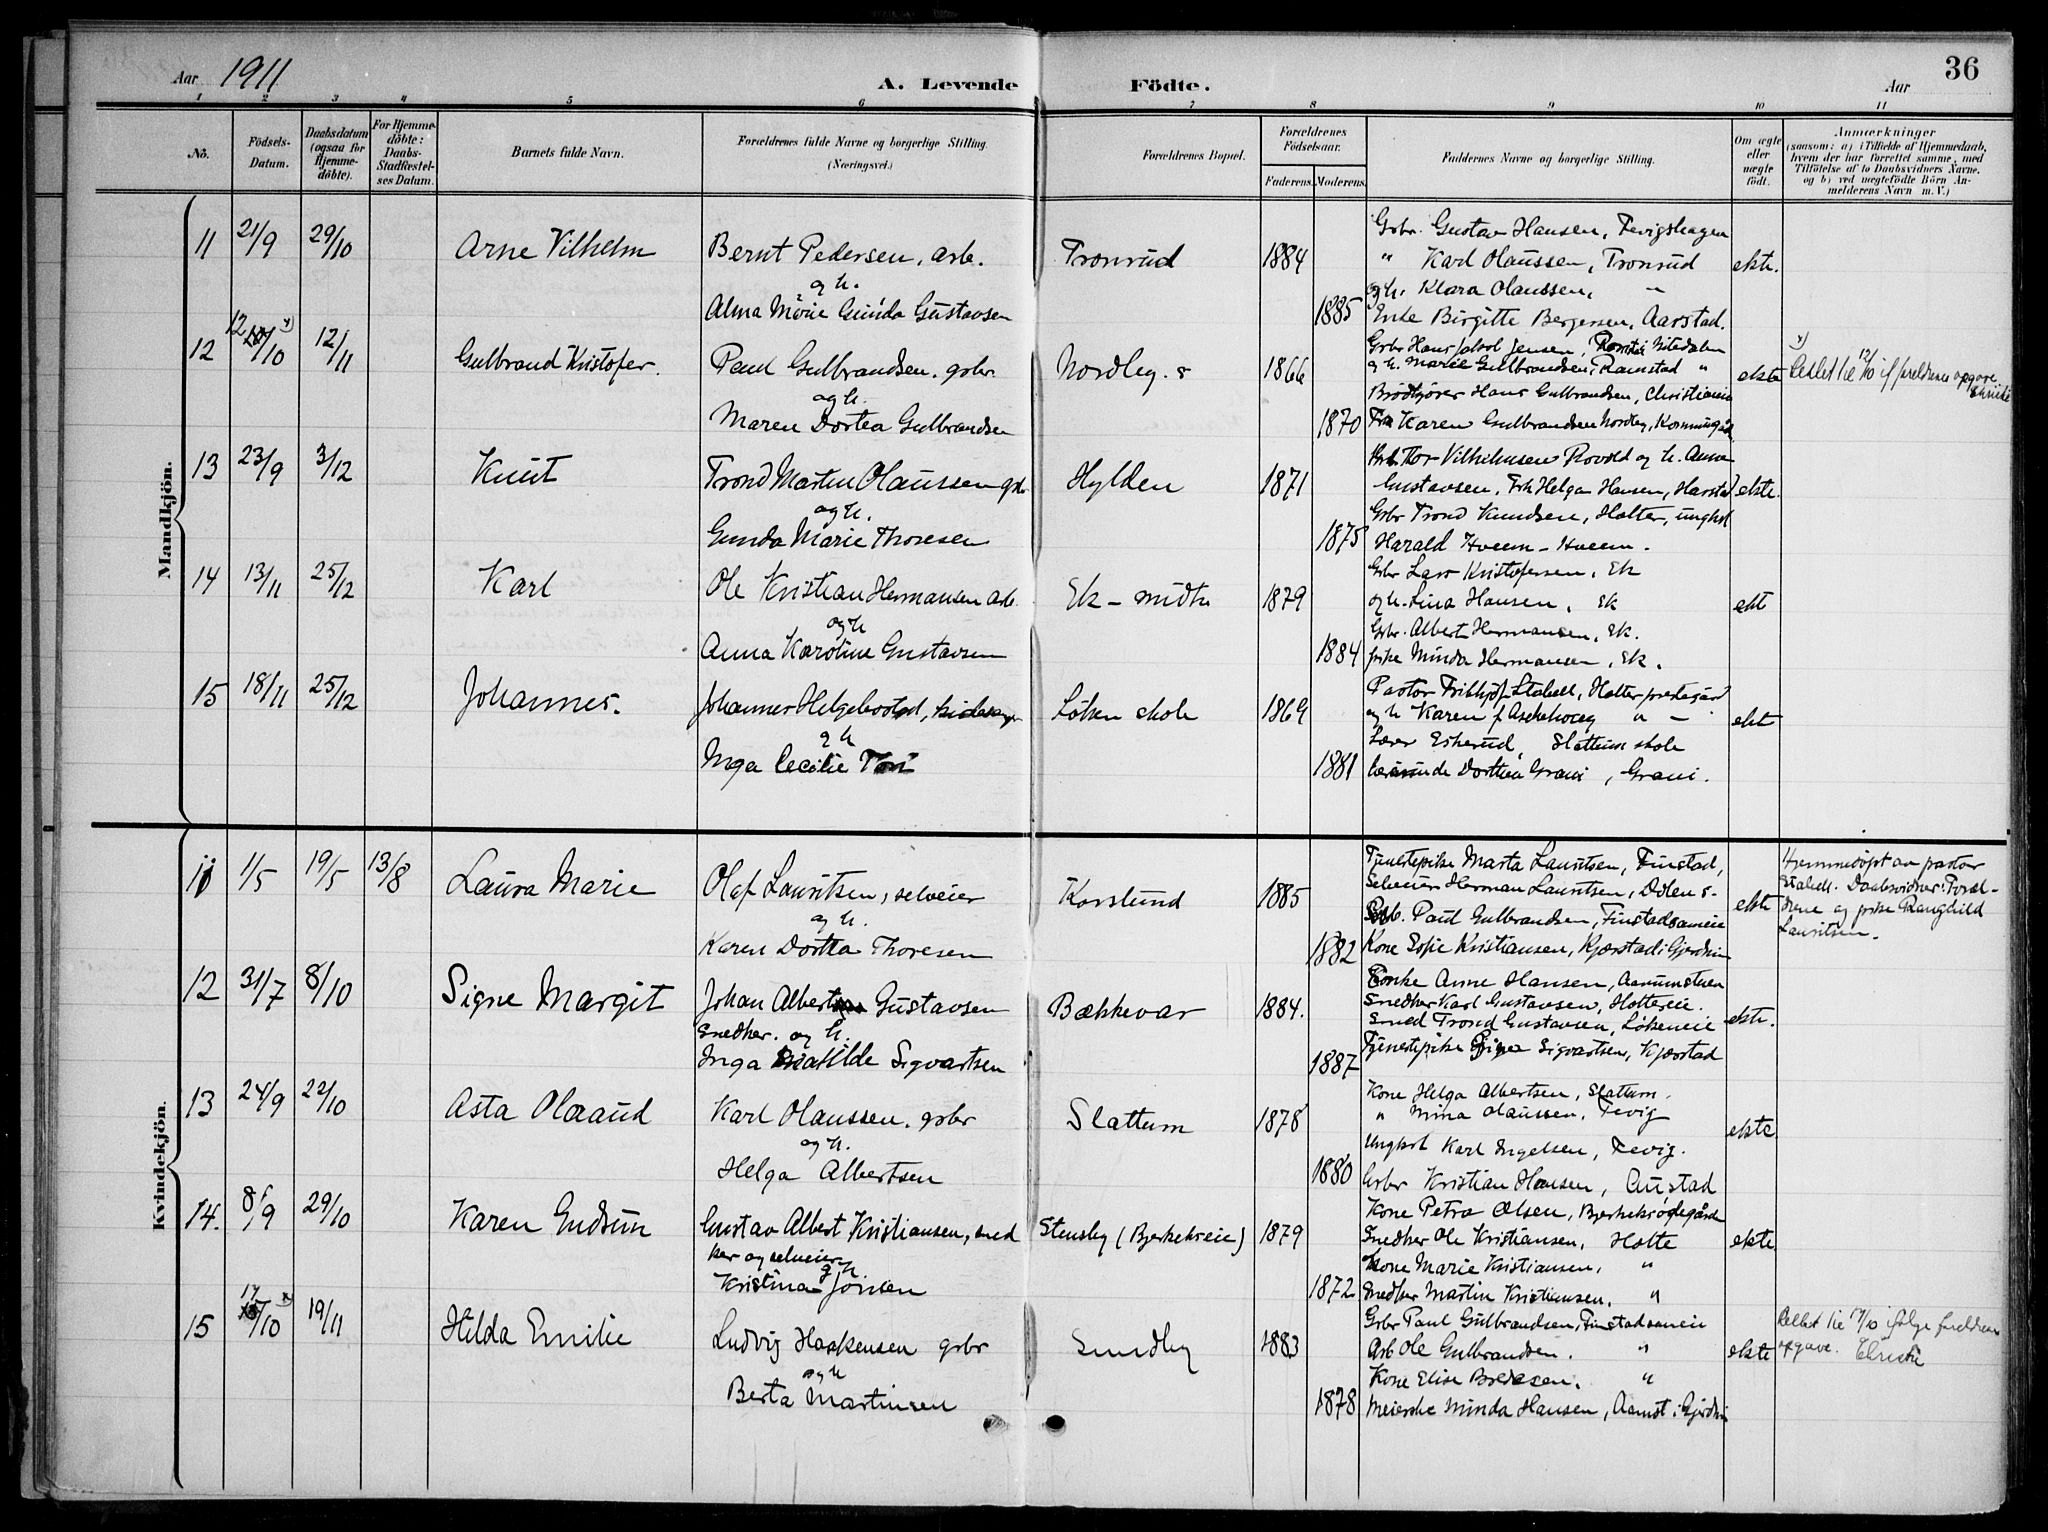 Aar 1911
A. Levende Födte.
Aar
36
1 2 3 4 5 6 7 8 9 10 11
No.
Födsels-Datum.
Daabsdatum (ogsaa for Hjemmedöbte).
For Hjemmedöbte: Daabs-Stadfæstelses Datum.
Barnets fulde Navn.
Forældrenes fulde Navne og borgerlige Stilling.
(Næringsvei.)
Forældrenes Bopæl.
Forældrenes Födselsaar.
Faderens. Moderens.
Faddernes Navne og borgerlige Stilling.
Om ægte eller uægte födt.
Anmærkninger
(saasom: a) i Tilfælde af Hjemmedaab, hvem der har forrettet samme, med Tilföielse af to Daabsvidners Navne. og b) ved uægtefödte Börn Anmelderens Navn m. V.)
Mandkjön.
11 21/9 29/10 Arne Vilhelm Bernt Pedersen, arb. Tronrud 1884 Grbr. Gustav Hansen, Tevigshagen ekte.
" Karl Olaussen, Tronrud
og h. og h. Klara Olaussen, "
Alma Marie Gunda Gustavsen 1885 Enke Birgitte Bergersen, Aarstad.
12 12/10 x) 12/11 Gulbrand Kristofer. Paul Gulbrandsen. gbr. Nordby. s 1866 Grbr Hans Jakob Jensen, Nitedalen ekte x) Rettet til 12/10 if foreldrenes opgave.
og h. Marie Gulbrandsen, Ramstad "
og h. Brødkjører Hans Gulbrandsen, Christiania
Maren Dortea Gulbrandsen 1870 Karen Gulbrandsen Nordby,
13 23/9 3/12 Knut Trond Martin Olaussen gbr Hylden 1871 Thor Vilhelmsen Rovold og h. Anna ekte.
Gustavsen. Frk Helga Hansen, Harstad
og h. Grbr Trond Knudsen, Holter, ungkl
Gunda Marie Thoresen 1875 Harald Hveem - Hveem.
14 13/11 25/12 Karl Ole Kristian Hermansen arb. Ek - midtr 1879 Grbr Lars Kristofersen, Ek ekt
og h. Lina Hansen, Ek
og h Grbr. Albert Hermansen, Ek.
Anna Karoline Gustavsen 1884 pike Minda Hermansen, Ek.
15 18/11 25/12 Johannes. Johannes Helgebostad, Løken skole 1869 Pastor Frithjof Stabell, Holter prestegård ekt
og h Karen f. Aschehoug " -
og h Lærer Eskerud, Slattum skole
Inga Cecilie 1881 Dorthea Grani, Grani.
Kvindekjön.
11 1/5 19/5 13/8 Laura Marie Olaf Lauritsen, selveier Korslund 1885 Tjenestepike Marta Lauritsen, Finstad, ekte Hjemmedøpt av pastor
Selveier Herman Lauritsen, Dølen s- Stabell. Daabsvidner: Foræl-
og h. Paul Gulbrandsen, Finstadsameie drene og pike Ranghild
Karen Dortea Thoresen 1882 Kone Sofie Kristiansen, Kjærstad i Gjerdrum Lauritsen.
12 31/7 8/10 Signe Margit Johan Albert Gustavsen Bækkevar 1884. Enke Anne Hansen, ekte.
Snedker. og h. Snedker Karl Gustavsen, Holtereie.
Smed Trond Gustavsen, Løkeneie
Inga Matilde Sigvartsen 1887 Tjenestepike Signe Sigvartsen, Kjærstad
13 24/9 22/10 Asta Olaaud Karl Olaussen. gbr Slattum 1878 Kone Helga Albertsen, Slattum. ekte
" Mina Olaussen, Tevig
og h. Ungkrl Karl Ingelsen, Tevig.
Helga Albertsen 1880 Grbr Kristian Hansen, Austad
14. 8/9 29/10 Karen Gudrun Gustav Albert Kristiansen, sned Stensby (Bjerkekreie) 1879 Kone Petra Olsen, ekte
ker og selveier Snedker Ole Kristiansen, Holte
og h Kone Marie Kristiansen, "
Kristina Jonsen 1872 Snedker Martin Kristiansen, "
15 17/10 x) 19/11 Hilda Emilie Ludvig Haakensen grbr Sundby 1883 Grbr Paul Gulbrandsen, Finstadsameie ekte Rettet til 17/10 ifølge foreldrenes
Arb Ole Gulbrandsen. " opgave. Christie
og h Kone Elise "
Berta Martinsen 1878 Meierske Minda Hansen, Aamot i Gjerdrum